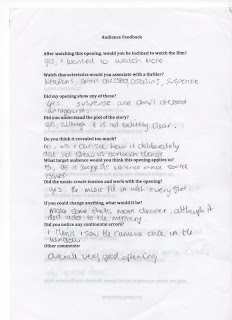 Audience Feedback
After watching this opening, would you be inclined to watch the film?
yes, I wanted to watch more.
What characteristics would you associate with a thriller?
weapons, smart dressed assassins, suspense
Did my opening show any of these?
yes suspense and smart dressed
antagonist.
Did you understand the plot of the story?
yes, although it is not entirely clear.
Do you think it revealed too much?
no, as I can see how it deliberately
did not show
What target audience would you think this opening applies to?
15, as it suggests violence and social
issues.
Did the music create tension and work with the opening?
yes, the music fit in with every shot.
If you could change anything, what would it be?
Make some shots more clearer, although it
did add to the mystery.
Did you notice any continual errors?
I think I saw the camera once in the
window
Other comments:
overall very good opening.